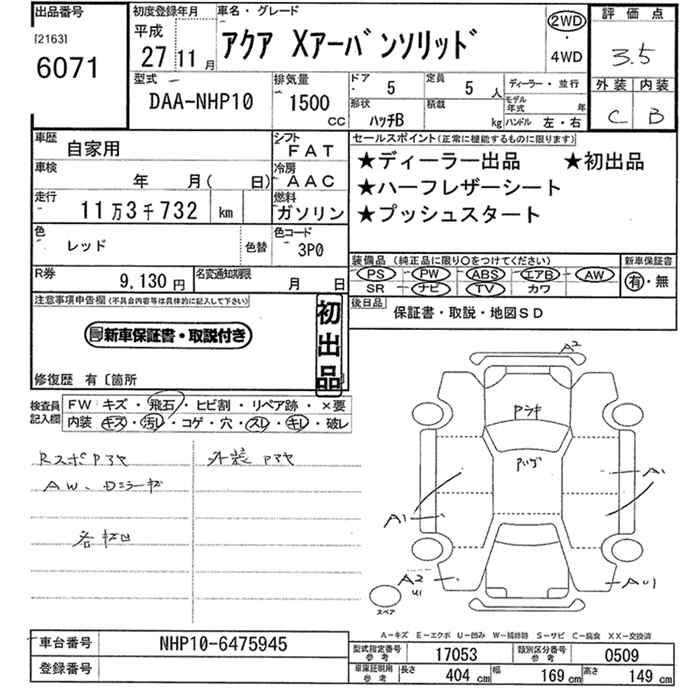 出品番号
[2163]
6071
初度登録年月
平成
27 11 月
車名・グレード
アクア Xアーバンソリッド
2WD
・
4WD
評価点
3.5
外装 内装
C B
型式
DAA-NHP10
排気量
1500
CC
ドア
5
定員
5 人
ディーラー・並行
形状
ハッチB
積載
kg
モデル年式 年
ハンドル 左・右
車歴
自家用
シフト
FAT
車検
年 月( 日)
冷房
AAC
走行
11万3千732 km
燃料
ガソリン
色
レッド
色替
色コード
3P0
R券
9,130 円
名変通知期限
月 日
セールスポイント(正常に機能するものに限ります)
★ディーラー出品 ★初出品
★ハーフレザーシート
★プッシュスタート
装備品 (純正品に限り○をつけてください)
PS PW ABS エアB AW
SR ナビ TV カワ
新車保証書
有・無
後日品
保証書・取説・地図SD
注意事項申告欄(不具合内容等は具体的に記入して下さい)
新車保証書・取説付き
初出品
修復歴 有〔箇所
検査員記入欄
FW キズ・飛石・ヒビ割・リペア跡・×要
内装 キズ・汚レ・コゲ・穴・スレ・キレ・破レ
AW、
A2
A1
A1
A2
U1
AU1
スペア
A－キズ E－エクボ U－凹み W－補修跡 S－サビ C－腐食 XX－交換済
車台番号
NHP10-6475945
登録番号
型式指定番号
参考
17053
類別区分番号
参考
0509
車庫証明用
参考
長さ 404 cm
幅 169 cm
高さ 149 cm